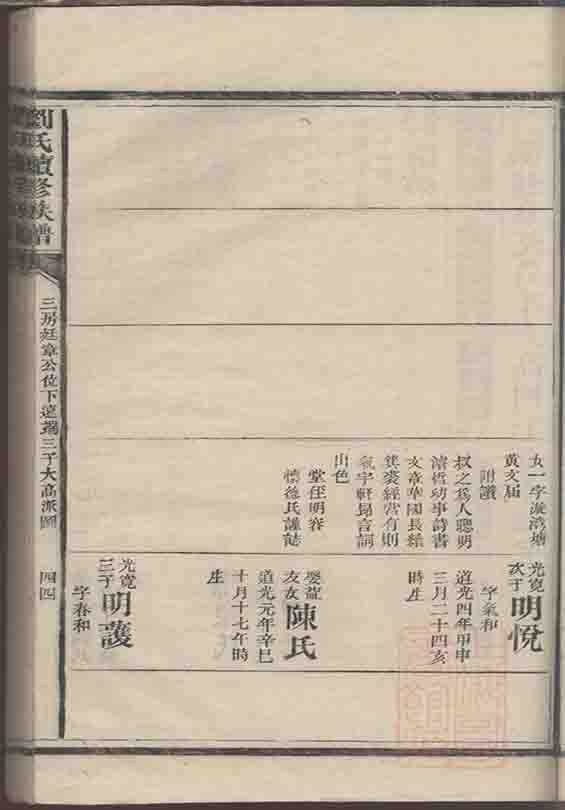 女一字派湾塘
黄文届
附讚
叔之為人聰明
濬哲幼事詩書
文章華國長結
箕裘經营有則
氣宇軒昂言詞
出色
堂侄明春
懷德氏謹誌
光寬
次子
明悅
字氣和
道光四年甲申
三月二十四亥
時生
娶龍
友女
陳氏
道光元年辛巳
十月十七午時
生
光寬
三子
明護
字春和
劉氏續修族譜
三房廷章公位下
三子大高派圖
四四